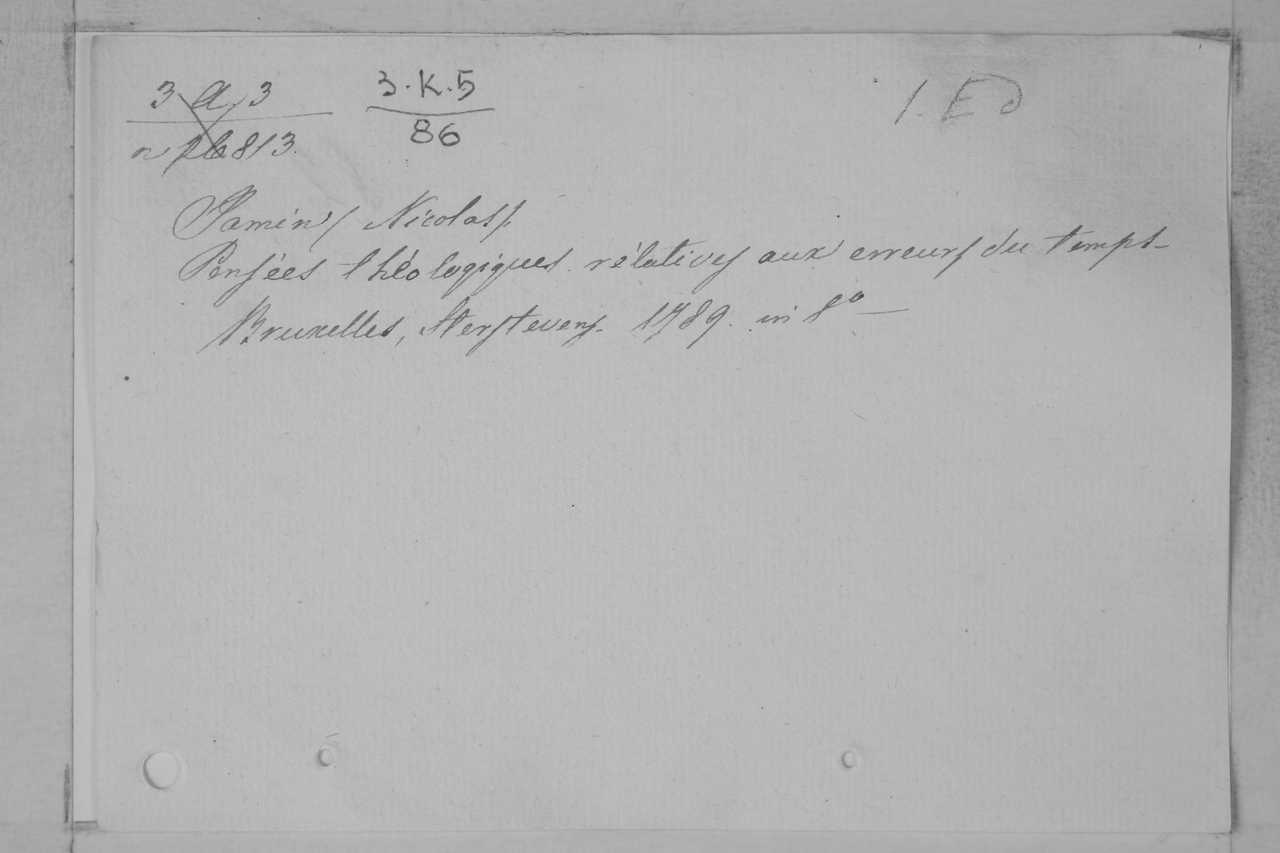 3 a 3
813.
3.K.5
86
1. ED
Jamin / Nicolas /.
Pensées théologiques rélatives aux erreurs du temps-
Bruxelles, Sterstevens. 1789. in 8º —